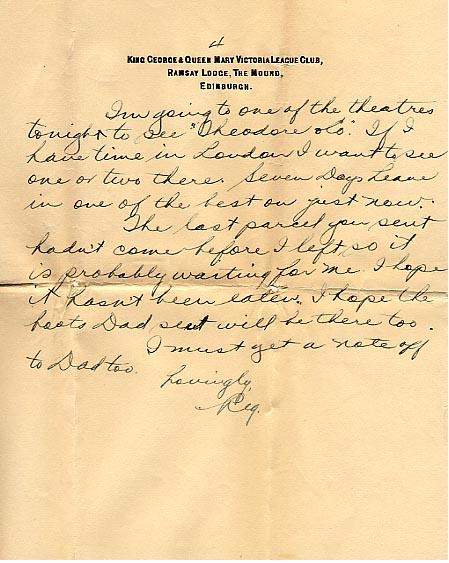 4
KING GEORGE & QUEEN MARY VICTORIA LEAGUE CLUB,
RAMSAY LODGE, THE MOUND,
EDINBURGH.
I'm going to one of the theatres
tonight to see "Theodore & Co". If I
have time in London I want to see
one or two there. Seven Days Leave
in one of the best on just now.
The last parcel you sent
hadn't come before I left, so it
is probably waiting for me. I hope
it hasn't been eaten. I hope the
boots Dad sent will be there too.
I must get a note off
to Dad too.
Lovingly,
Reg.